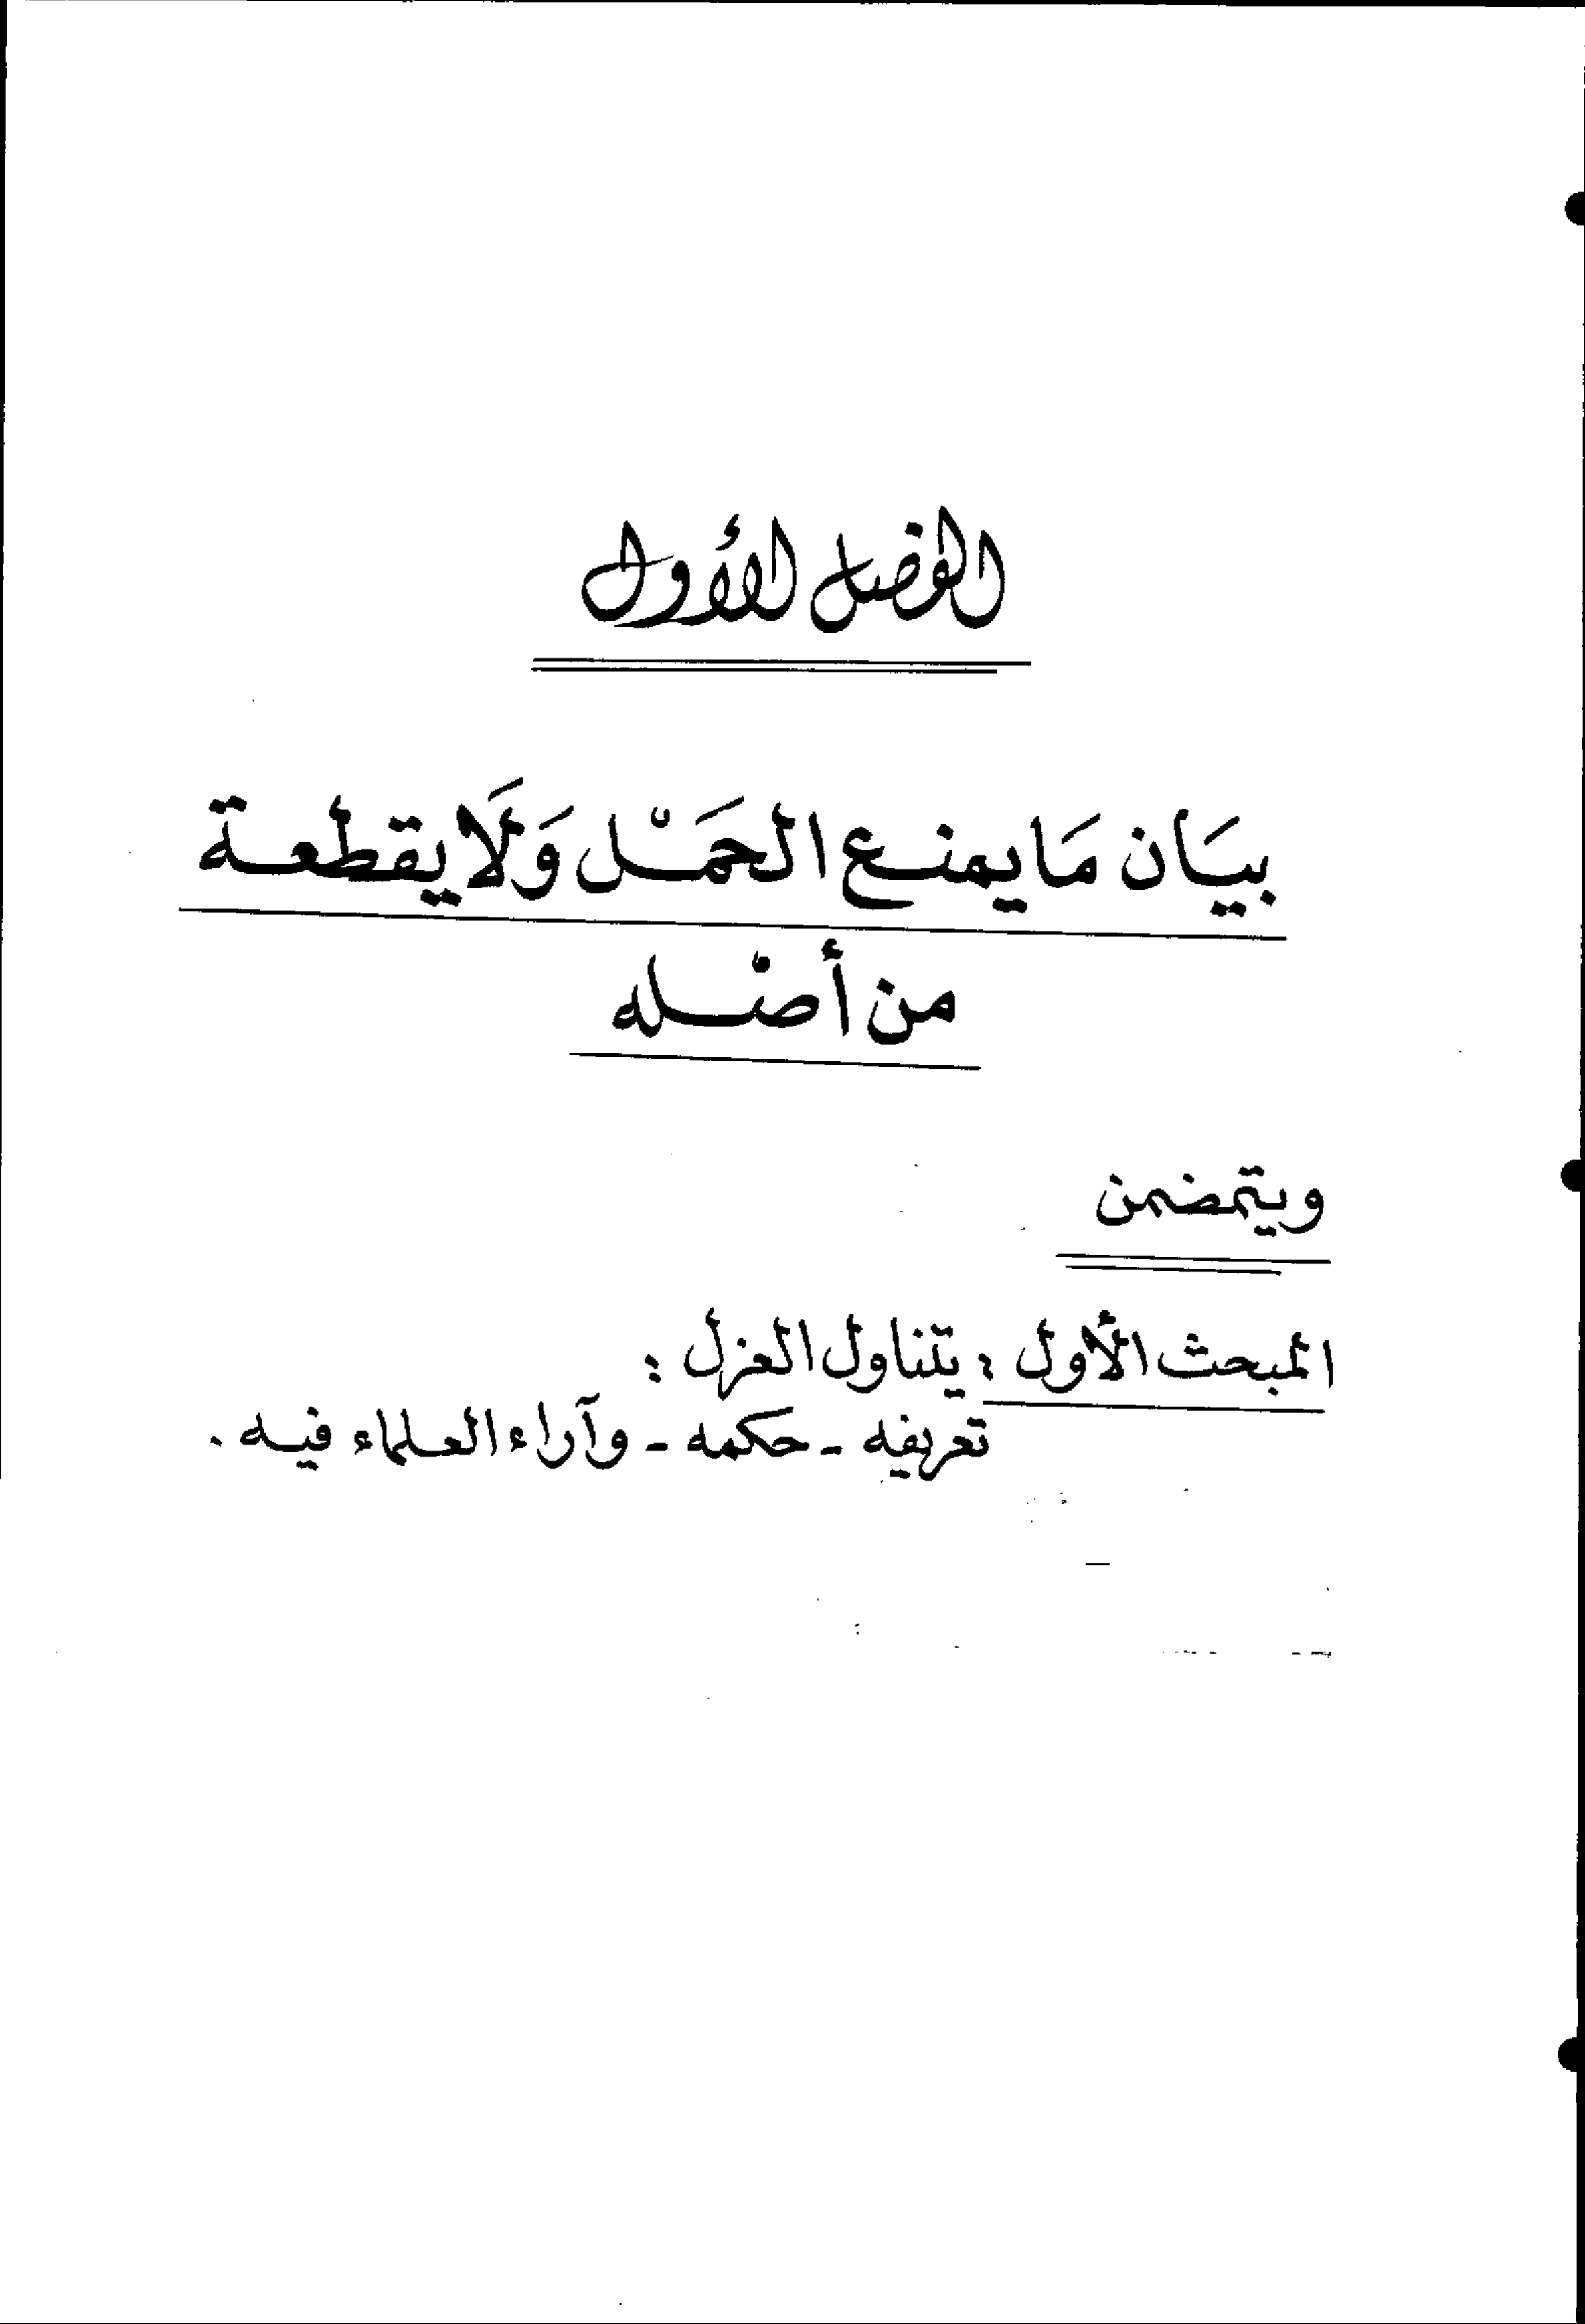 الفصل الأول
بيَان مَا يمنع الحَمْل وَلَا يقطعة
من أصْله
ويتضمن
المبحث الأول : يتناول العزل :
تعريفه - حكمه - وآراء العلماء فيه .